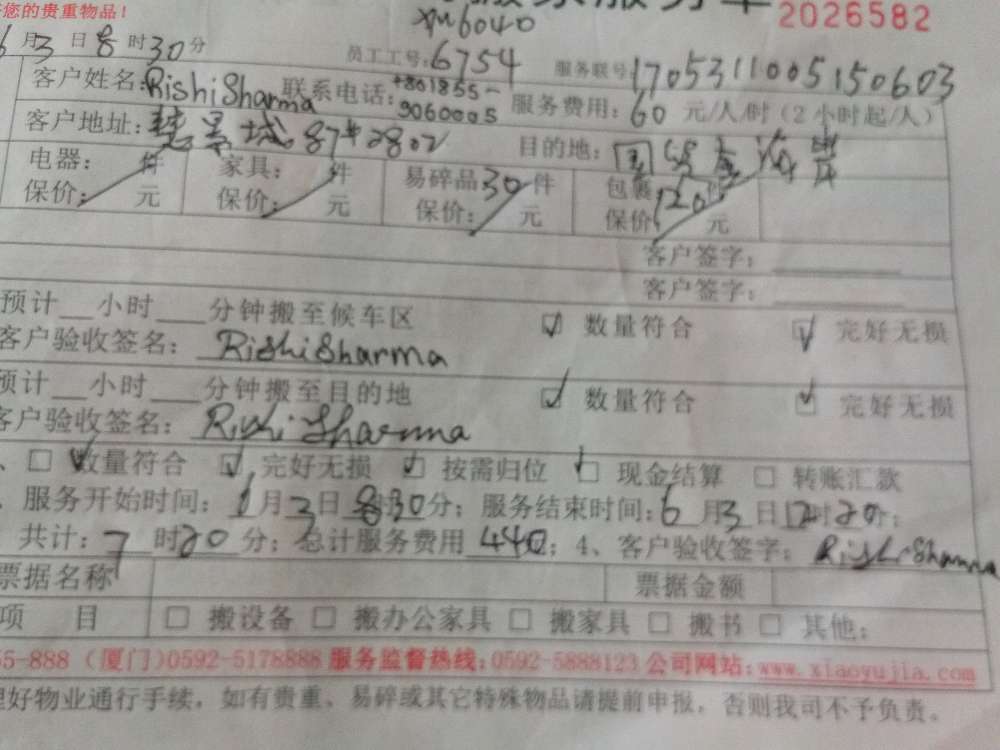 您的贵重物品！
服务单 2026582
xm6040
6月3日8时30分 员工工号:6754 服务联号170531100515060З
客户姓名:RishiSharma 联系电话:+861855-9060005 服务费用:60元/人/时（2小时起/人）
客户地址: 城87#2802 目的地:国 海岸
电器: 件 家具: 件 易碎品30件 包裹120件
保价: 元 保价: 元 保价: 元 保价: 元
客户签字:
客户签字:
预计__小时___分钟搬至候车区 ☑ 数量符合 ☑ 完好无损
客户验收签名: RishiSharma
预计__小时___分钟搬至目的地 ☑ 数量符合 ☑ 完好无损
客户验收签名: Rishi Sharma
、☐ 数量符合 ☑ 完好无损 ☑ 按需归位 ☑ 现金结算 ☐ 转账汇款
、服务开始时间: 6月3日8时30分; 服务结束时间:6月3日12时20分;
共计:7时20分; 总计服务费用440; 4、客户验收签字: RishiSharma
票据名称 票据金额
项 目 ☐ 搬设备 ☐ 搬办公家具 ☐ 搬家具 ☐ 搬书 ☐ 其他:
55-888（厦门)0592-5178888 服务监督热线:0592-5888123 公司网站:www.xiaoyujia.com
理好物业通行手续，如有贵重、易碎或其它特殊物品请提前申报，否则我司不予负责。